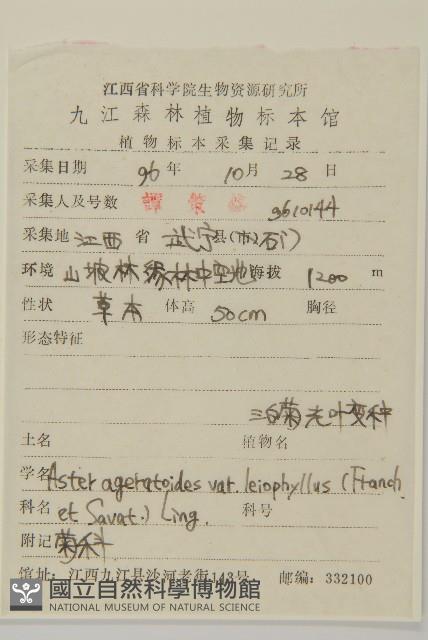 江西省科学院生物资源研究所
九江森林植物标本馆
植物标本采集记录
采集日期 96 年 10 月 28 日
采集人及号数 譚策銘 9610144
采集地 江西 省 武宁 县(市) 石门
环境 山坡林缘林中空地 海拔 1200 m
性状 草本 体高 50cm 胸径
形态特征
三白菊光叶变种
土名 植物名
学名 Aster ageratoides var. leiophyllus (Franch.
科名 et Savat.) Ling. 科号
附记 菊科
馆址: 江西九江县沙河老街143号 邮编: 332100
國立自然科學博物館
NATIONAL MUSEUM OF NATURAL SCIENCE